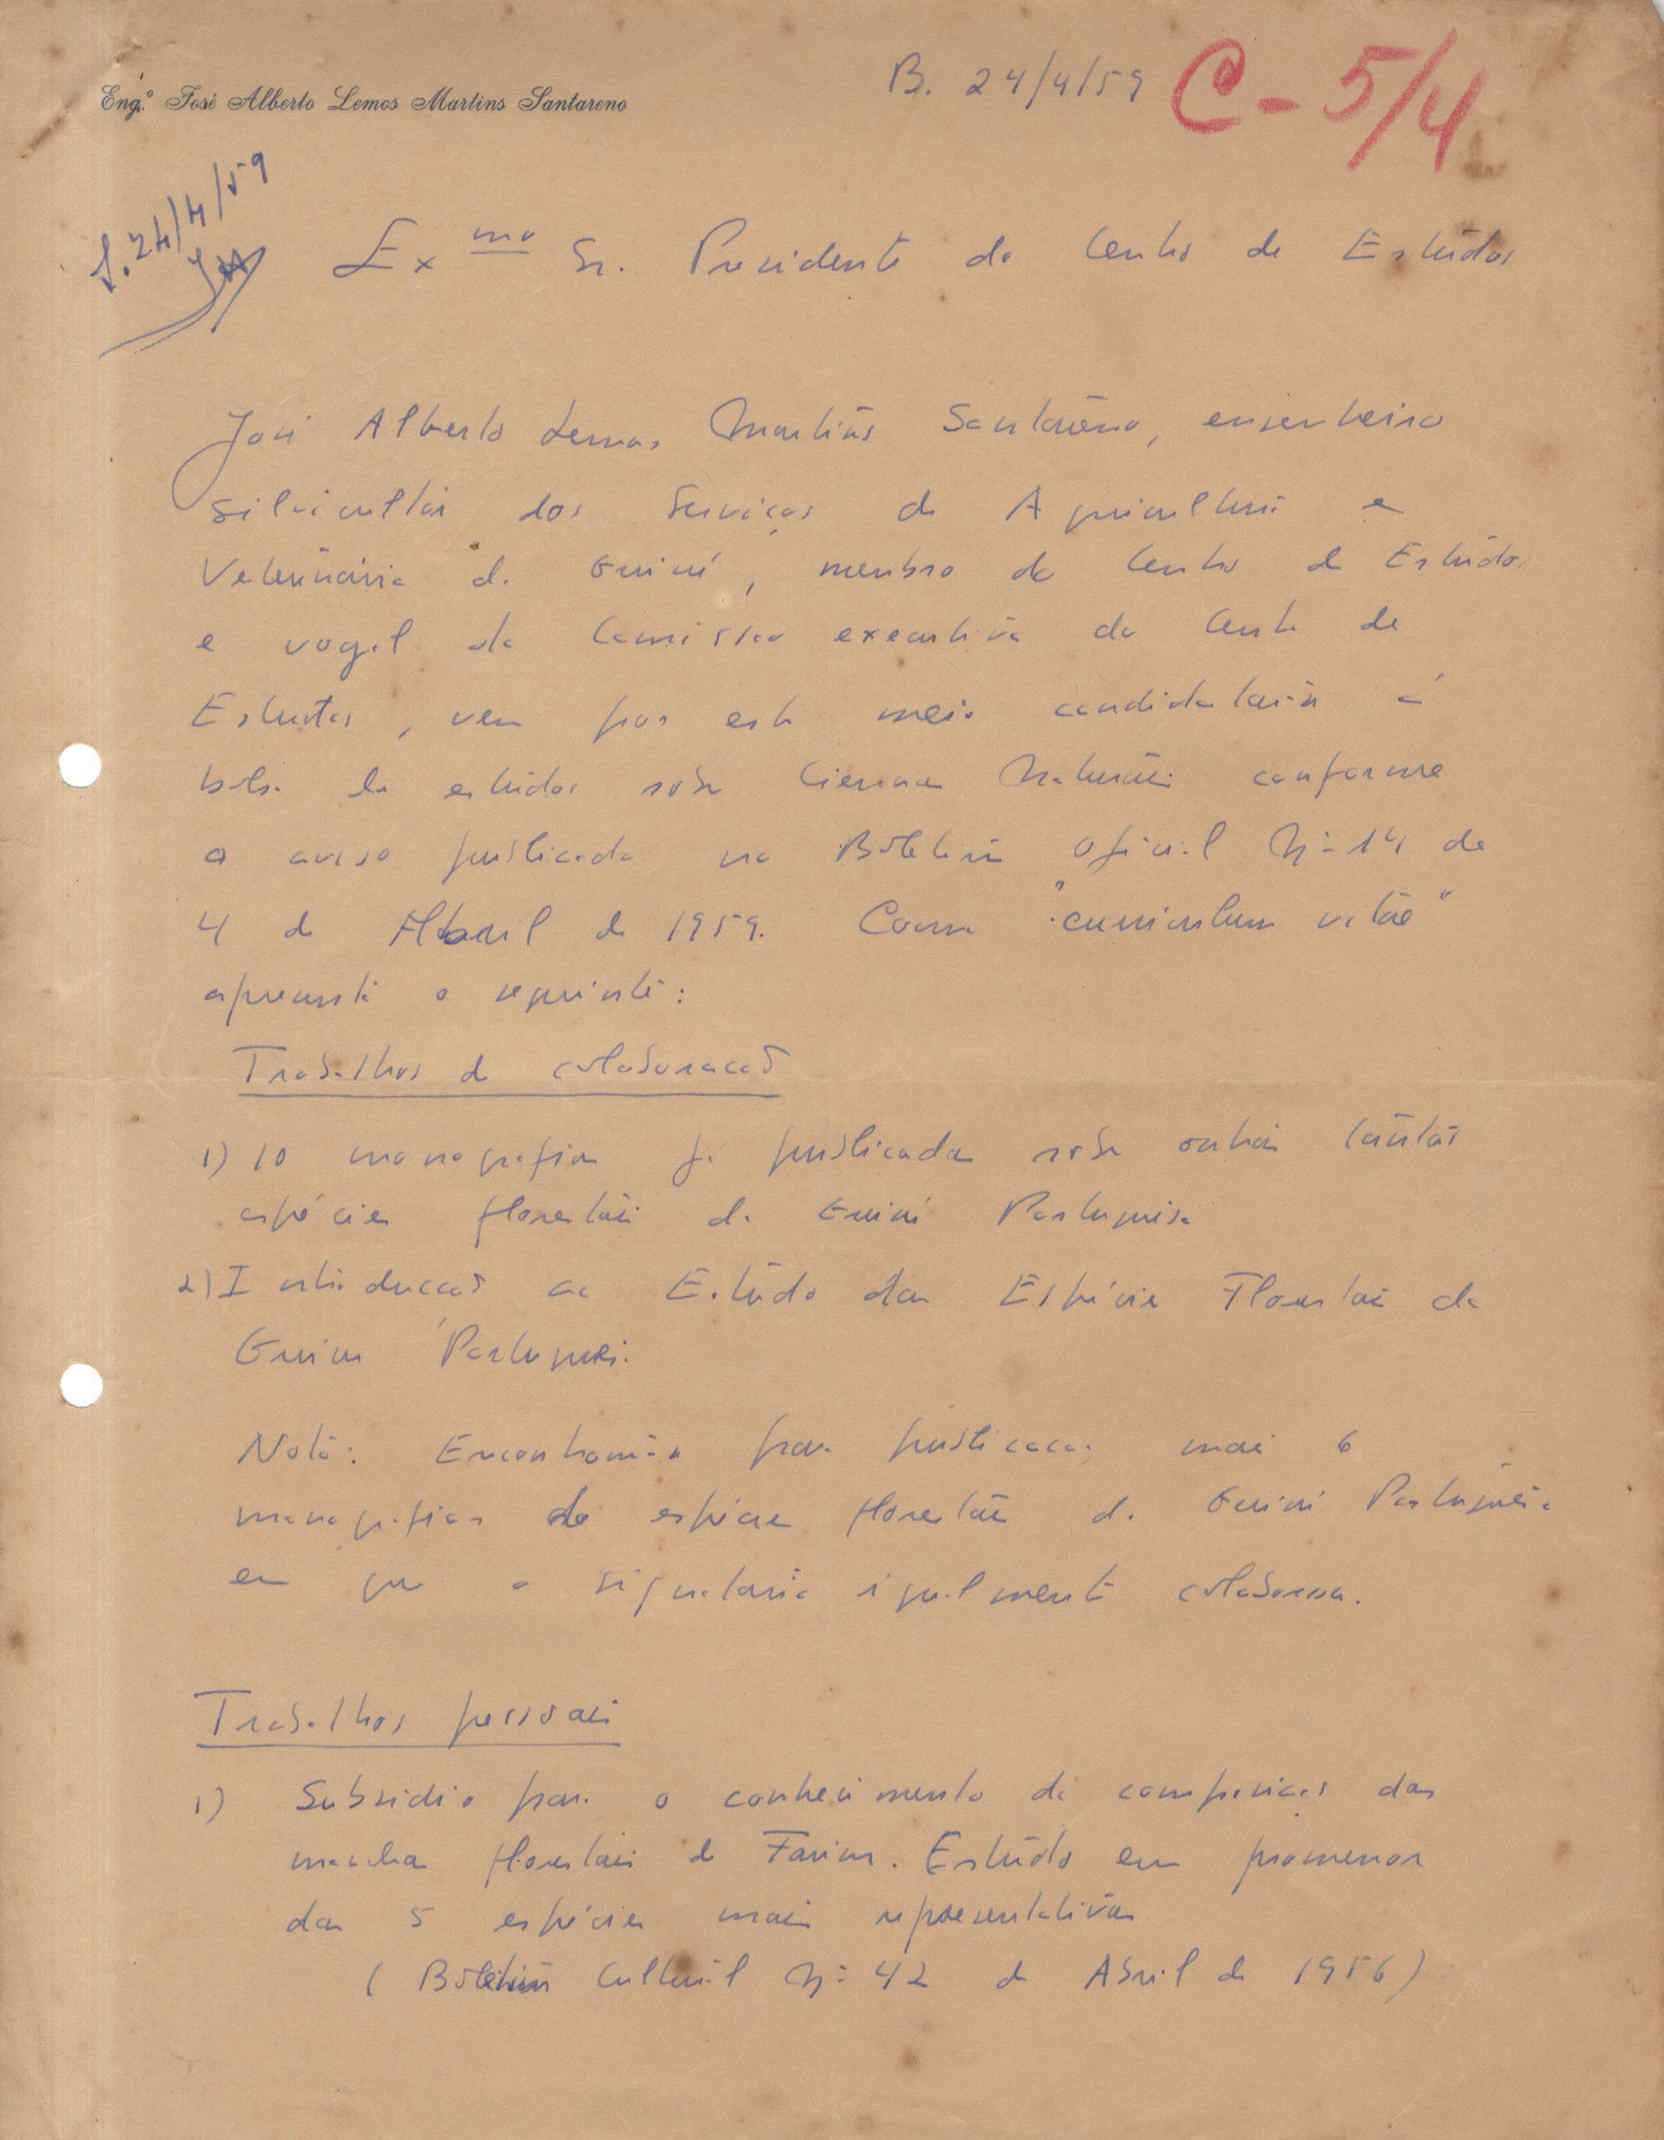 Eng.º José Alberto Lemos Martins Santareno
B. 24/4/59
C-5/4
24/4/59
Exmo Sr. Presidente do Centro de Estudos
José Alberto Lemos Martins Santareno, engenheiro
silvicultor dos Serviços de Agricultura e
Veterinária da Guiné, membro do Centro de Estudos
e vogal da Comissão executiva do Centro de
Estudos, vem por este meio candidatar-se á
bolsa de estudos sobre Ciencias Naturais conforme
o aviso publicado no Boletim Oficial Nº 14 de
4 de Abril de 1959. Como "curriculum vitae"
apresenta o seguinte:
Trabalhos de colaboração
1) 10 monografias já publicadas sobre outras tantas
espécies florestais da Guiné Portuguesa
2) Introdução ao Estudo das Espécies Florestais da
Guiné Portuguesa.
Nota: Encontram-se para publicação mais 6
monografias de espécies florestais da Guiné Portuguesa
em que o signatario igualmente colaborou.
Trabalhos pessoais
1) Subsidio para o conhecimento da composição das
manchas florestais de Farim. Estudo em promenor
das 5 espécies mais representativas
(Boletim Cultural Nº 42 de Abril de 1956)